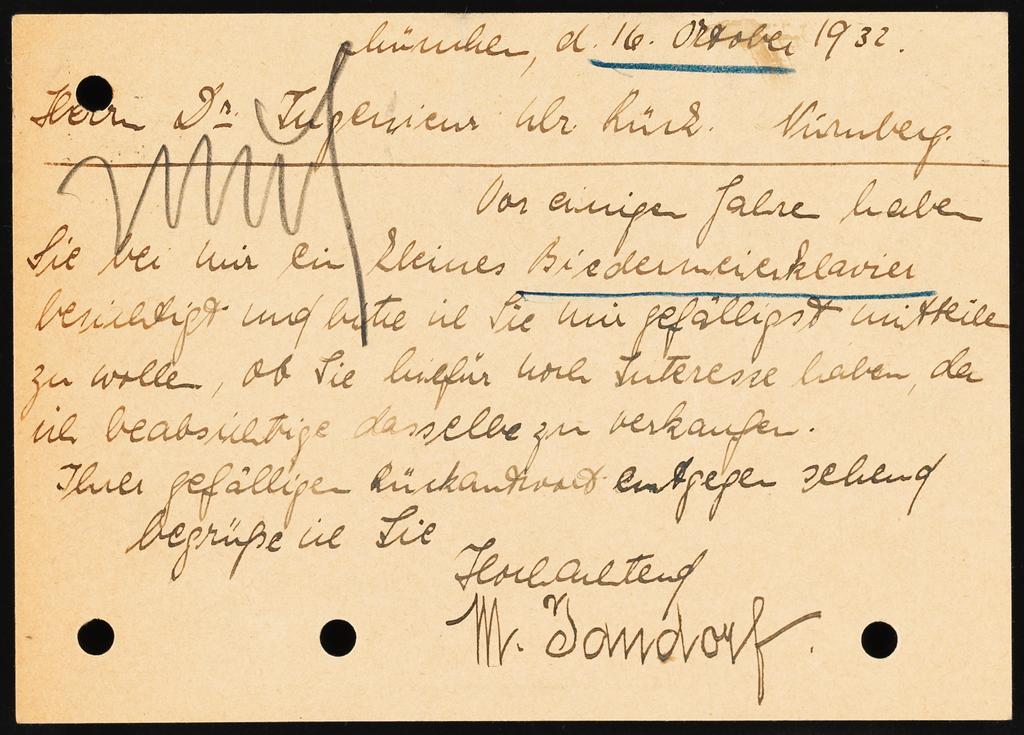 München, d. 16. Oktober 1932.
Herrn Dr. Ingenieur Ulr. Rück. Nürnberg.
Vor einigen Jahren haben
Sie bei mir ein kleines Biedermeierklavier
besichtigt und bitte ich Sie mir gefälligst mitteilen
zu wollen, ob Sie hiefür noch Interesse haben, da
ich beabsichtige dasselbe zu verkaufen.
Ihrer gefälligen Rückantwort entgegen sehend
begrüße ich Sie
Hochachtend
M. Jandorf.